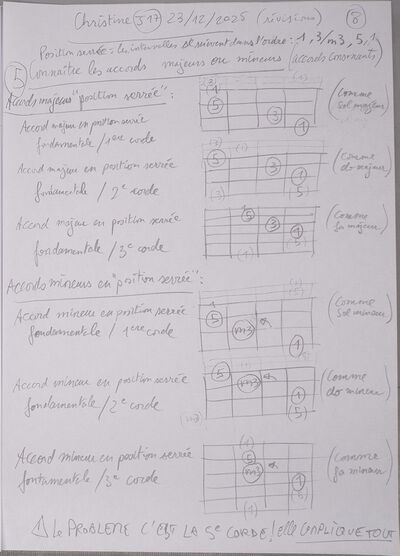 Christine J17 23/12/2025 (révisions) 6
Position serrée = les intervalles se suivent dans l'ordre : 1, 3/m3, 5, 1
5 Connaître les accords majeurs ou mineurs (accords consonants)
Accords majeurs "position serrée" :
(3) 1
5
3
1
(comme sol majeur)
Accord majeur en position serrée
fondamentale / 1ere corde
5 (1)
3
1
(3) (5)
(comme do majeur)
Accord majeur en position serrée
fontamentale / 2e corde
1 5
3
1
(1) (5)
(comme fa majeur)
Accord majeur en position serrée
fondamentale / 3e corde
Accords mineurs en "position serrée" :
1
5
m3
1
(5)
(comme sol mineur)
Accord mineur en position serrée
fondamentale / 1ere corde
5
m3
1
(m3) (5)
(comme do mineur)
Accord mineur en position serrée
fondamentale / 2e corde
(1)
5
m3
1
(1) (5)
(comme fa mineur)
Accord mineur en position serrée
fontamentale / 3e corde
⚠ LE PROBLEME C'EST LA 5e CORDE ! elle COMPLIQUE TOUT